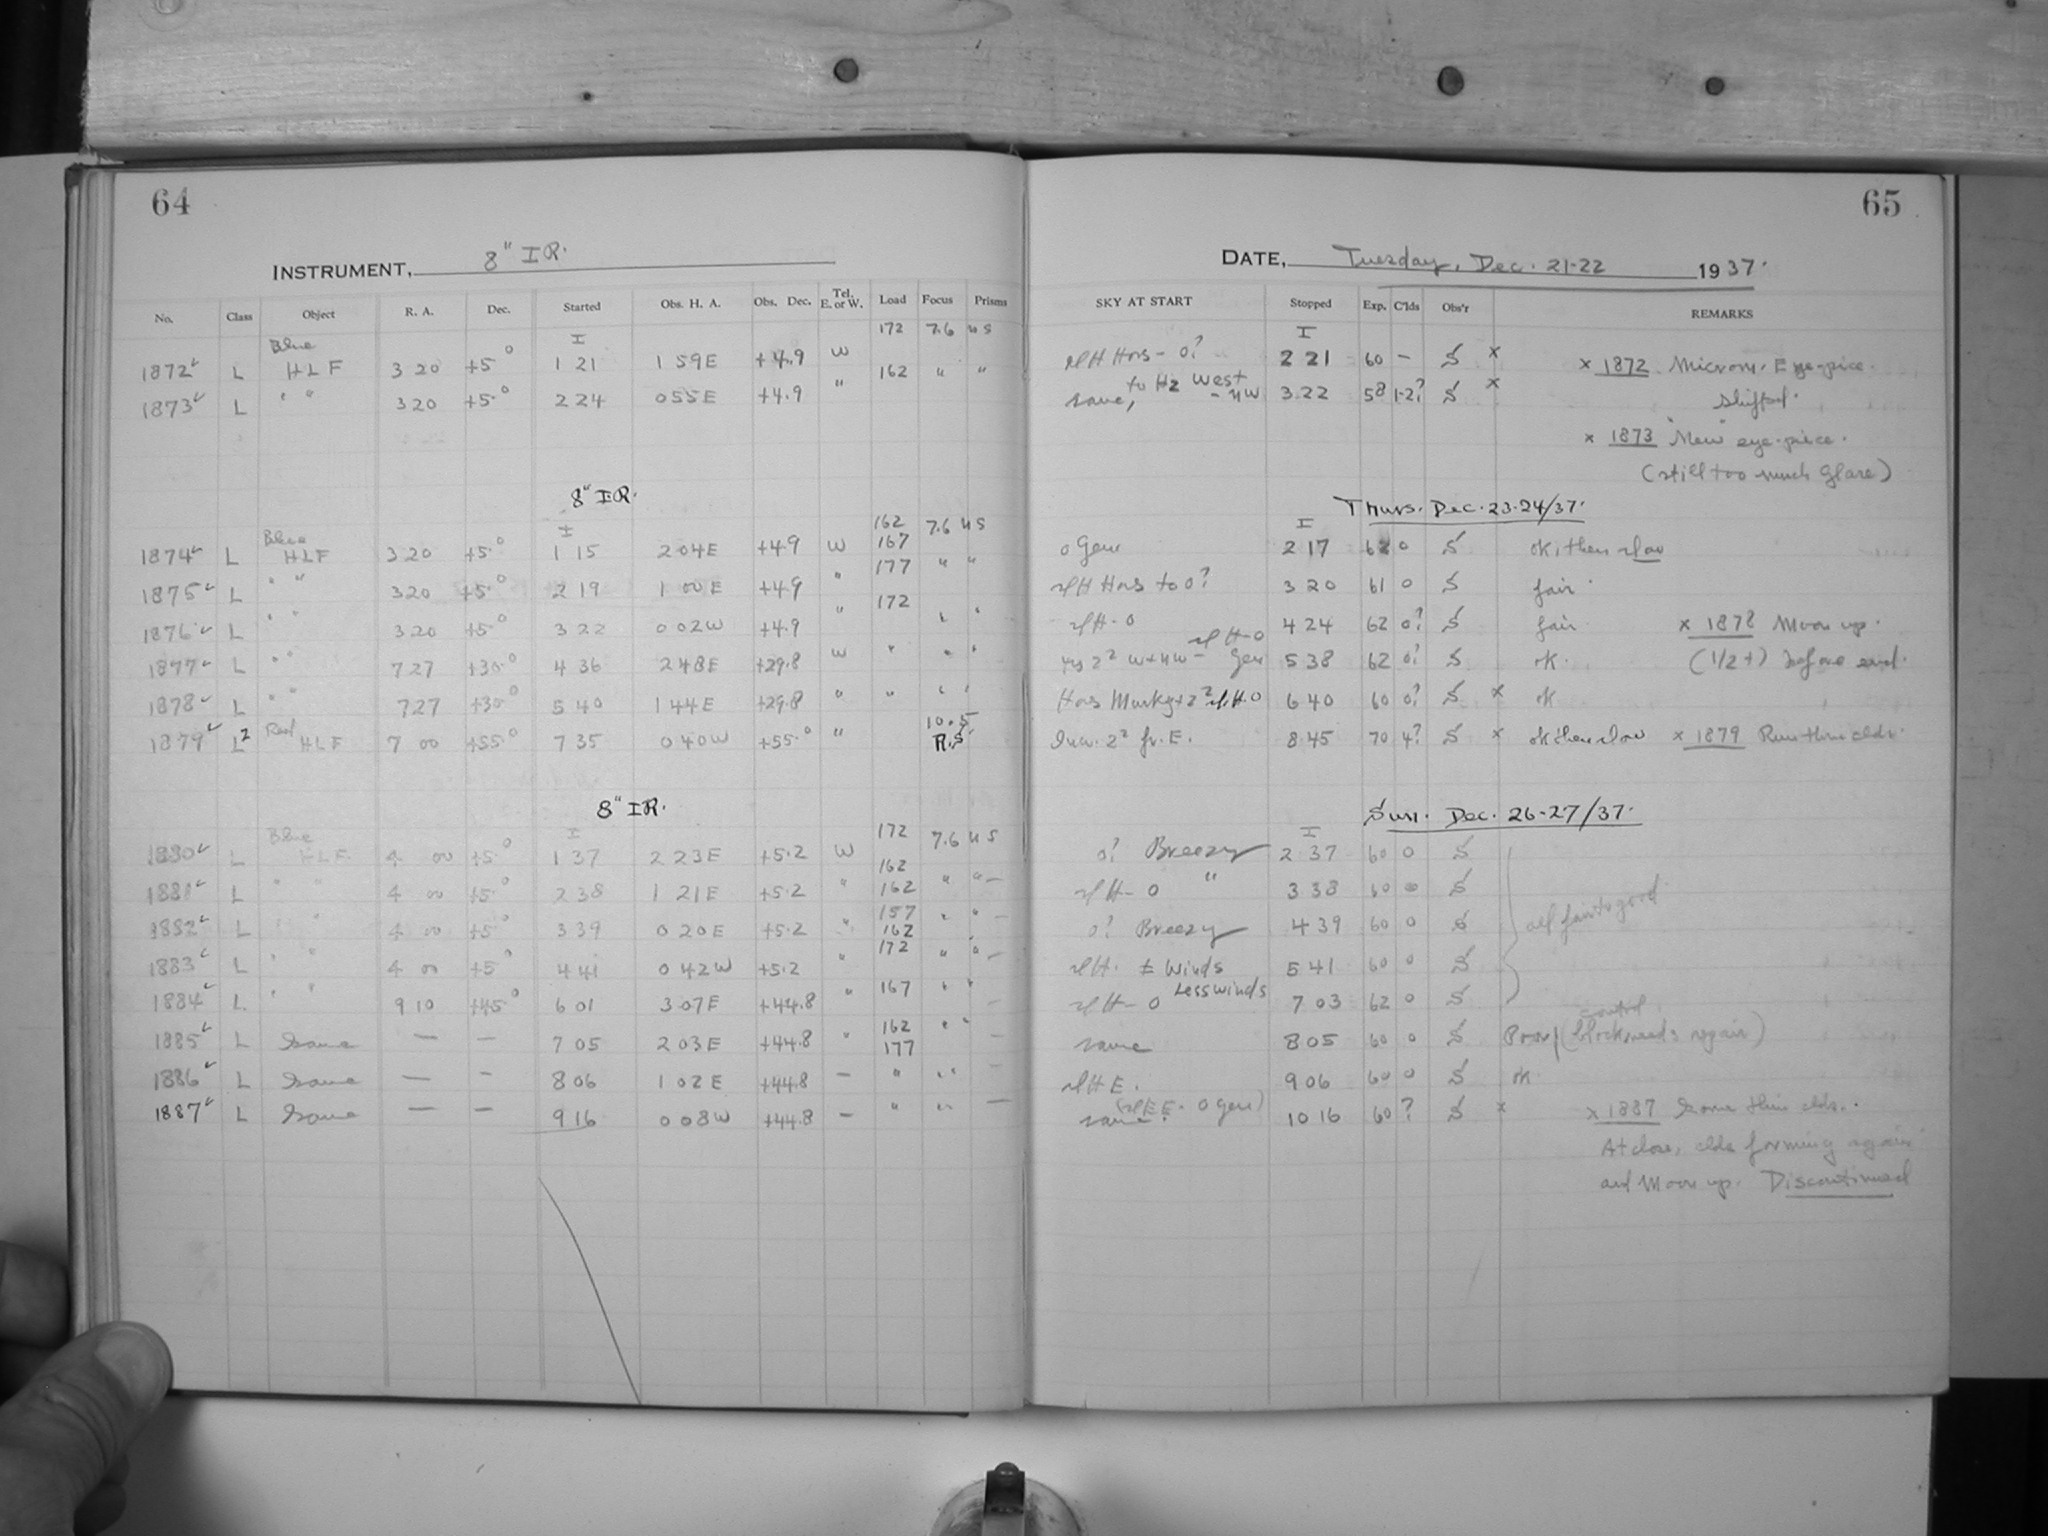 64
INSTRUMENT, 8" IR.
No. Class Object R. A. Dec. Started Obs. H. A. Obs. Dec. Tel. E. or W. Load Focus Prisms
Blue I 172 7.6 u s
1872 L HLF 3 20 +5° 1 21 1 59E +4.9 W 162 " "
1873 L " " 3 20 +5° 2 24 0 55E +4.9 "
8" IR.
Blue I 162 7.6 u s
1874 L HLF 3 20 +5° 1 15 2 04E +4.9 W 167
1875 L " " 3 20 +5° 2 19 1 00E +4.9 " 177 " "
1876 L " " 3 20 +5° 3 22 0 02W +4.9 " 172
1877 L " " 7 27 +30° 4 36 2 48E +29.8 W " " "
1878 L " " 7 27 +30° 5 40 1 44E +29.8 " " " "
1879 L2 Red HLF 7 00 +55° 7 35 0 40W +55° " 10.5 R.S.
8" IR.
Blue I 172 7.6 u s
1880 L HLF 4 00 +5° 1 37 2 23E +5.2 W 162
1881 L " " 4 00 +5° 2 38 1 21E +5.2 " 162 " " –
1882 L " 4 00 +5° 3 39 0 20E +5.2 " 157 162 " " –
1883 L " " 4 00 +5° 4 41 0 42W +5.2 " 172 " " –
1884 L " " 9 10 +45° 6 01 3 07E +44.8 " 167 " " –
1885 L Same — — 7 05 2 03E +44.8 " 162 177 " " –
1886 L Same — – 8 06 1 02E +44.8 – " " " –
1887 L Same — — 9 16 0 08W +44.8 – " " –
65
DATE, Tuesday, Dec. 21-22 1937.
SKY AT START Stopped Exp. C'lds Obs'r REMARKS
I
Hors – 0? 2 21 60 – S x x 1872 Microm. Eye-piece
same, to Hz West – NW 3 22 58 1-2? S x shifted.
x 1873 "New" eye-piece.
(still too much glare)
Thurs. Dec. 23-24/37.
I
0 Gen 2 17 62 0 S ok, then slow
Hors to 0? 3 20 61 0 S fair
4 24 62 0? S fair x 1878 Moon up.
Gen 5 38 62 0? S ok. (1/2+) before end.
Hors Murky 6 40 60 0? S x ok
fr. E. 8 45 70 4? S x ok then slow x 1879 Run thru clds.
Sun. Dec. 26-27/37.
I
0? Breezy 2 37 60 0 S
0 " 3 38 60 0 S
0? Breezy 4 39 60 0 S all fair to good
± Winds 5 41 60 0 S
0 Less winds 7 03 62 0 S
same 8 05 60 0 S Poor (control clock needs repair)
9 06 60 0 S ok.
same. 10 16 60 ? S x x 1887 Some thin clds.
At close, clds forming again
and Moon up. Discontinued